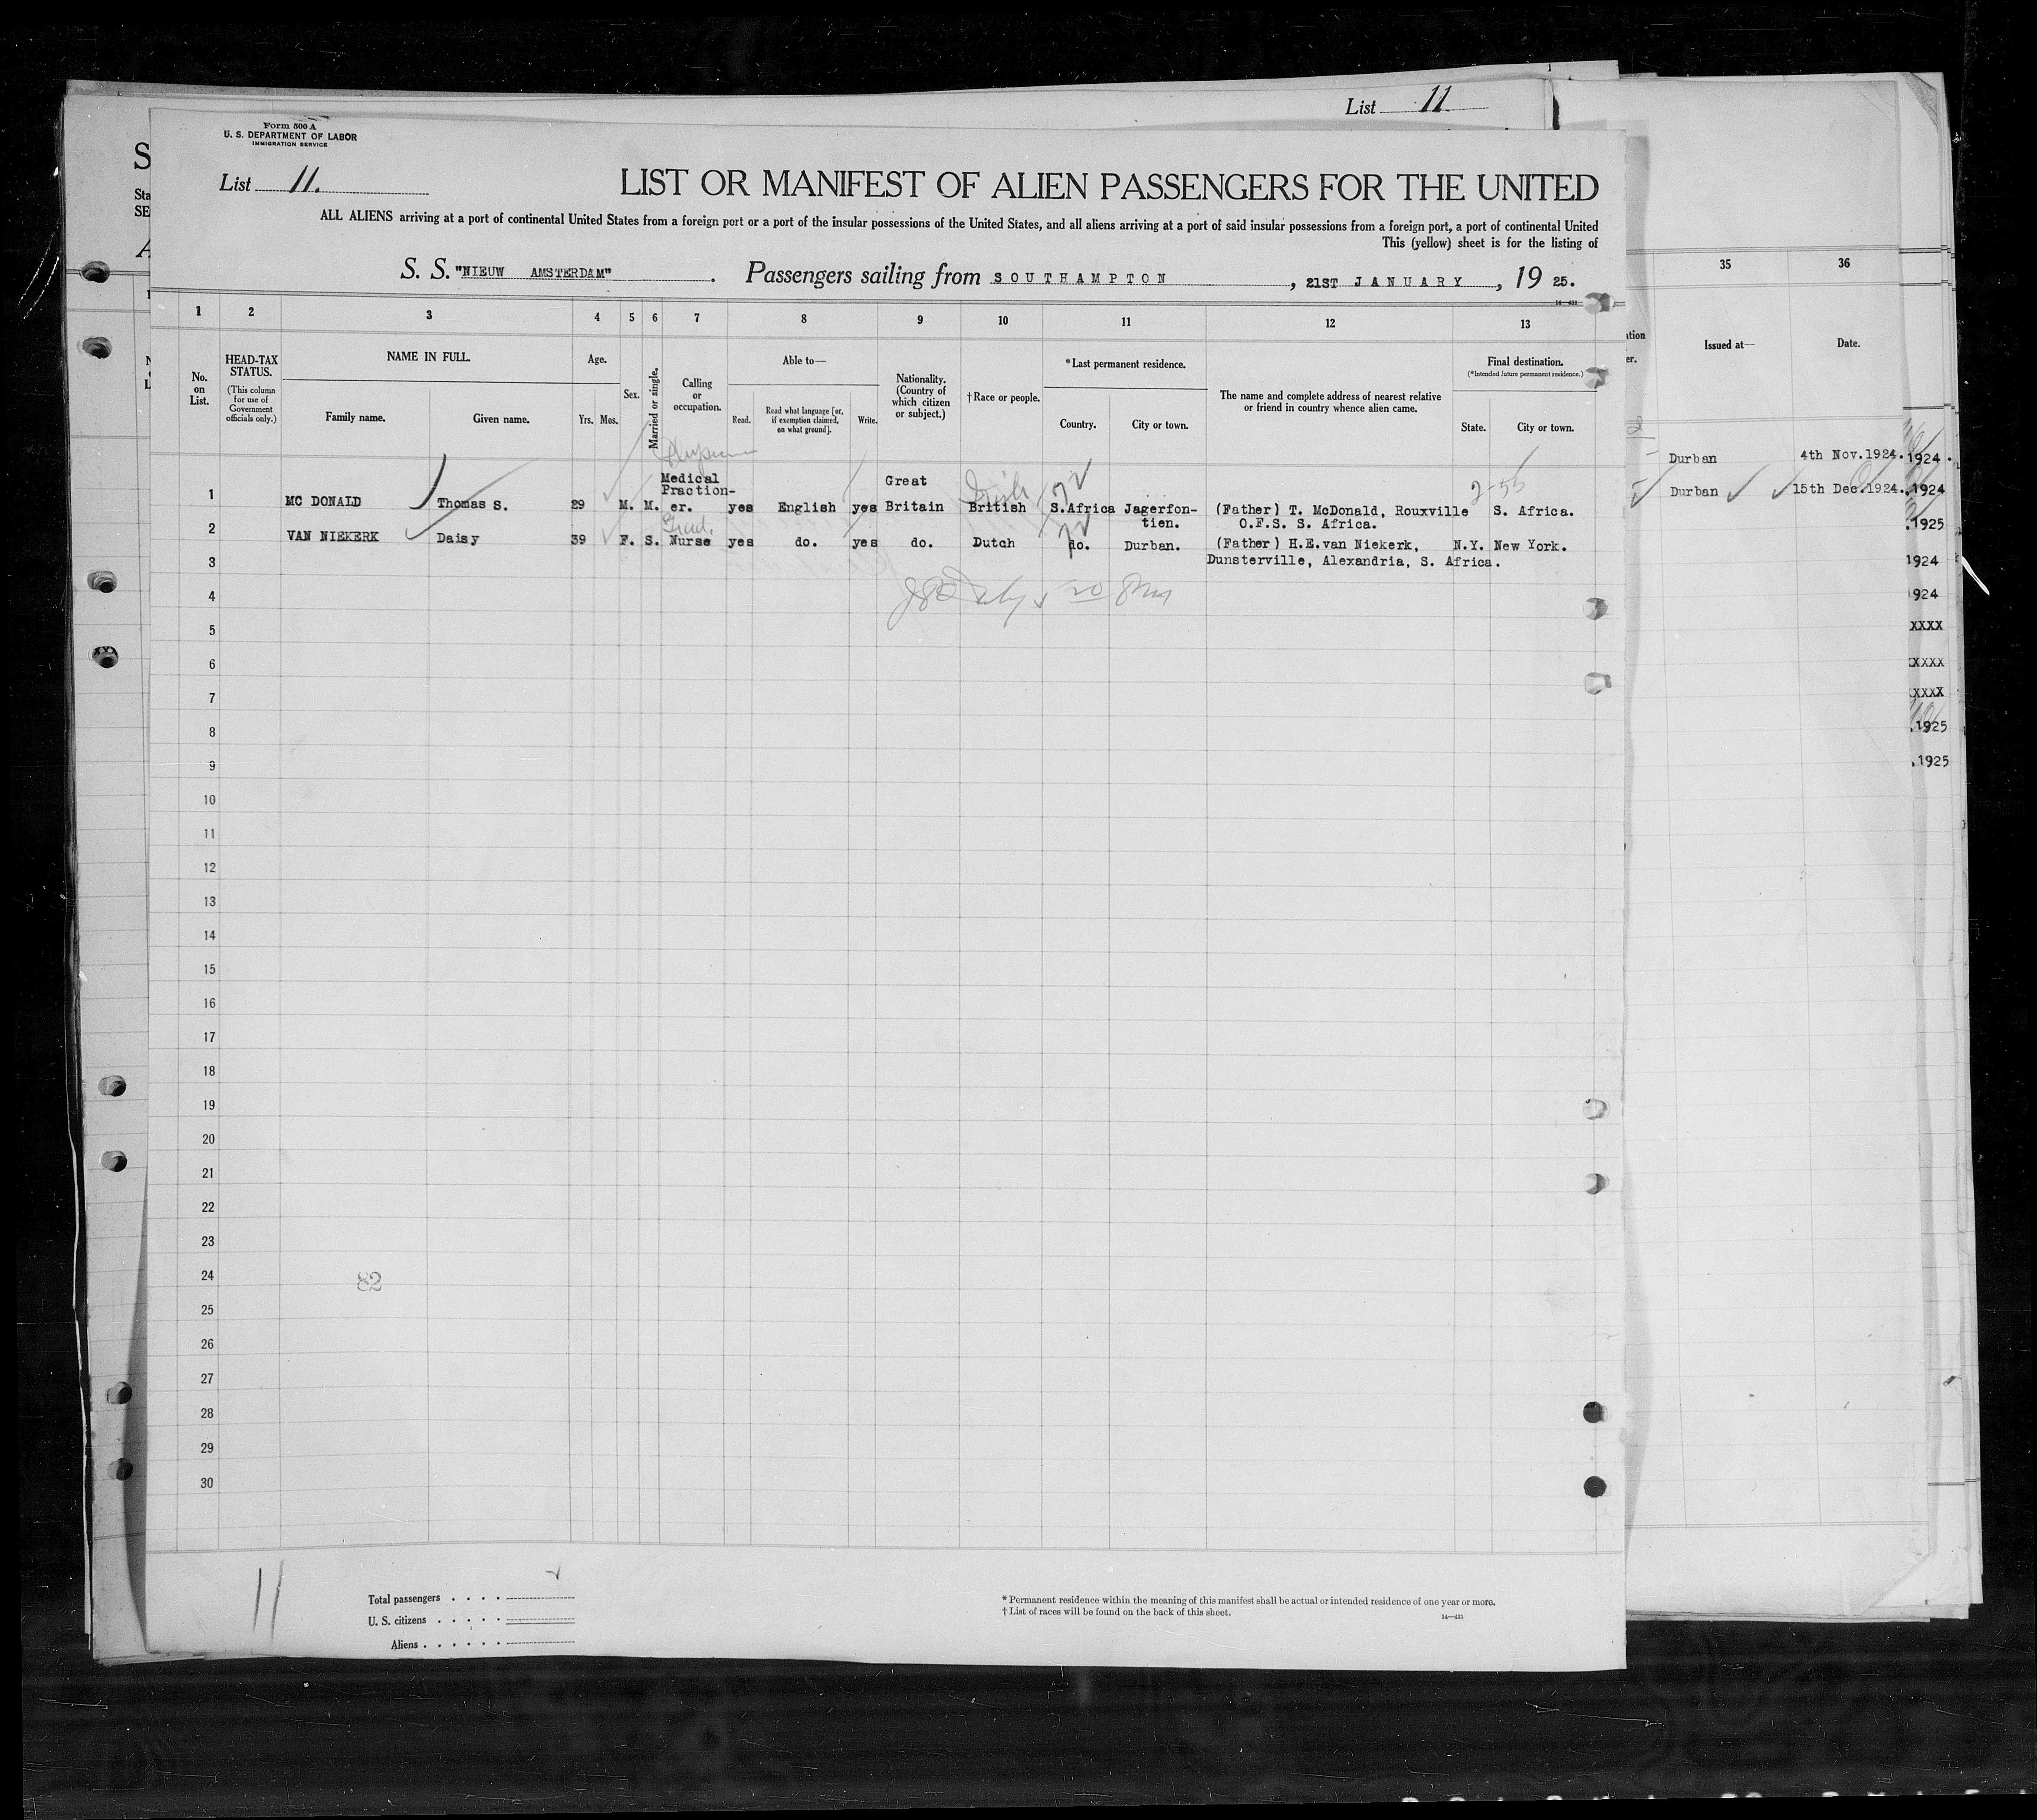 List 11
Form 500 A
U. S. DEPARTMENT OF LABOR
IMMIGRATION SERVICE
List 11.
LIST OR MANIFEST OF ALIEN PASSENGERS FOR THE UNITED
ALL ALIENS arriving at a port of continental United States from a foreign port or a port of the insular possessions of the United States, and all aliens arriving at a port of said insular possessions from a foreign port, a port of continental United
This (yellow) sheet is for the listing of
S. S. "NIEUW AMSTERDAM" . Passengers sailing from SOUTHAMPTON , 21ST JANUARY , 19 25.
14—431
1 2 3 4 5 6 7 8 9 10 11 12 13 35 36
No. on List.
HEAD-TAX STATUS.
(This column for use of Government officials only.)
NAME IN FULL.
Family name. Given name.
Age.
Yrs. Mos.
Sex.
Married or single.
Calling or occupation.
Able to—
Read. Read what language [or, if exemption claimed, on what ground]. Write.
Nationality. (Country of which citizen or subject.)
†Race or people.
*Last permanent residence.
Country. City or town.
The name and complete address of nearest relative or friend in country whence alien came.
Final destination.
(*Intended future permanent residence.)
State. City or town.
Issued at— Date.
Durban 4th Nov.1924. 1924.
Durban 15th Dec.1924. 1924
2-55
Irish
1 MC DONALD Thomas S. 29 M. M. Medical Praction-er. yes English yes Great Britain British S.Africa Jagerfon-tien. (Father) T. McDonald, Rouxville O.F.S. S. Africa. S. Africa.
Grad.
2 VAN NIEKERK Daisy 39 F. S. Nurse yes do. yes do. Dutch do. Durban. (Father) H.E.van Niekerk, Dunsterville, Alexandria, S. Africa. N.Y. New York.
.1925
3
1924
4
924
5
XXXX
6
XXXX
7
.XXXX
8
.1925
9
.1925
10
11
12
13
14
15
16
17
18
19
20
21
22
23
24
82
25
26
27
28
29
30
11
Total passengers . . . .
U. S. citizens . . . . .
Aliens . . . . . .
* Permanent residence within the meaning of this manifest shall be actual or intended residence of one year or more.
† List of races will be found on the back of this sheet.
14—431